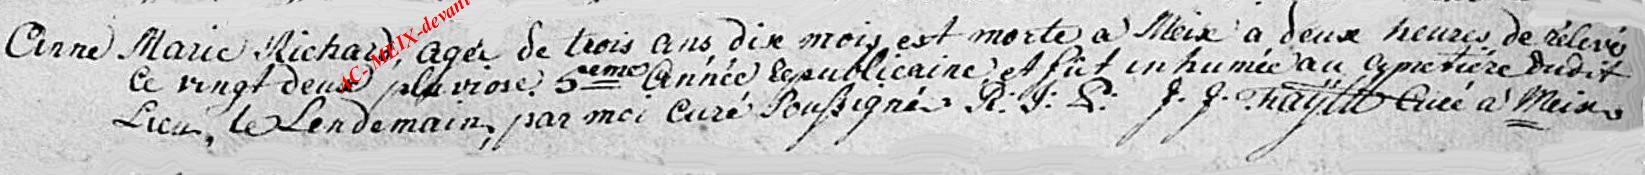 Anne Marie Richard, agée de trois ans dix mois, est morte a Meix a deux heures de rélevée
le vingt deux pluviose, 5eme année republicaine, et fût inhumée au cymetiére dudit
Lieu, le Lendemain, par moi Curé soussigné R. I. P. J. J. Curé a Meix
AC-MEIX-devant